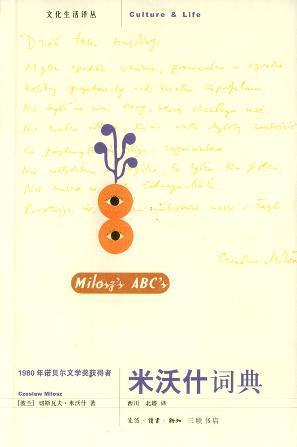 文化生活译丛
Culture & Life
Dzień taki szczęśliwy.
Mgła opadła wcześnie, pracowałem w ogrodzie
Kolibry przystawały nad kwiatem kaprifolium.
Nie było na ziemi rzeczy, którą chciałbym mieć.
Nie znałem warto byłoby zazdrościć
Co złego, zapomniałem
Nie wstydziłem że byłem kim jestem
Nie żadnego bólu.
Prostując się, niebieskie morze i żagle
Czesław Miłosz
Milosz's ABC's
1980年诺贝尔文学奖获得者
米沃什词典
Czeslaw Milosz
[波兰] 切斯瓦夫·米沃什 著
西川 北塔 译
生活·读书·新知 三联书店